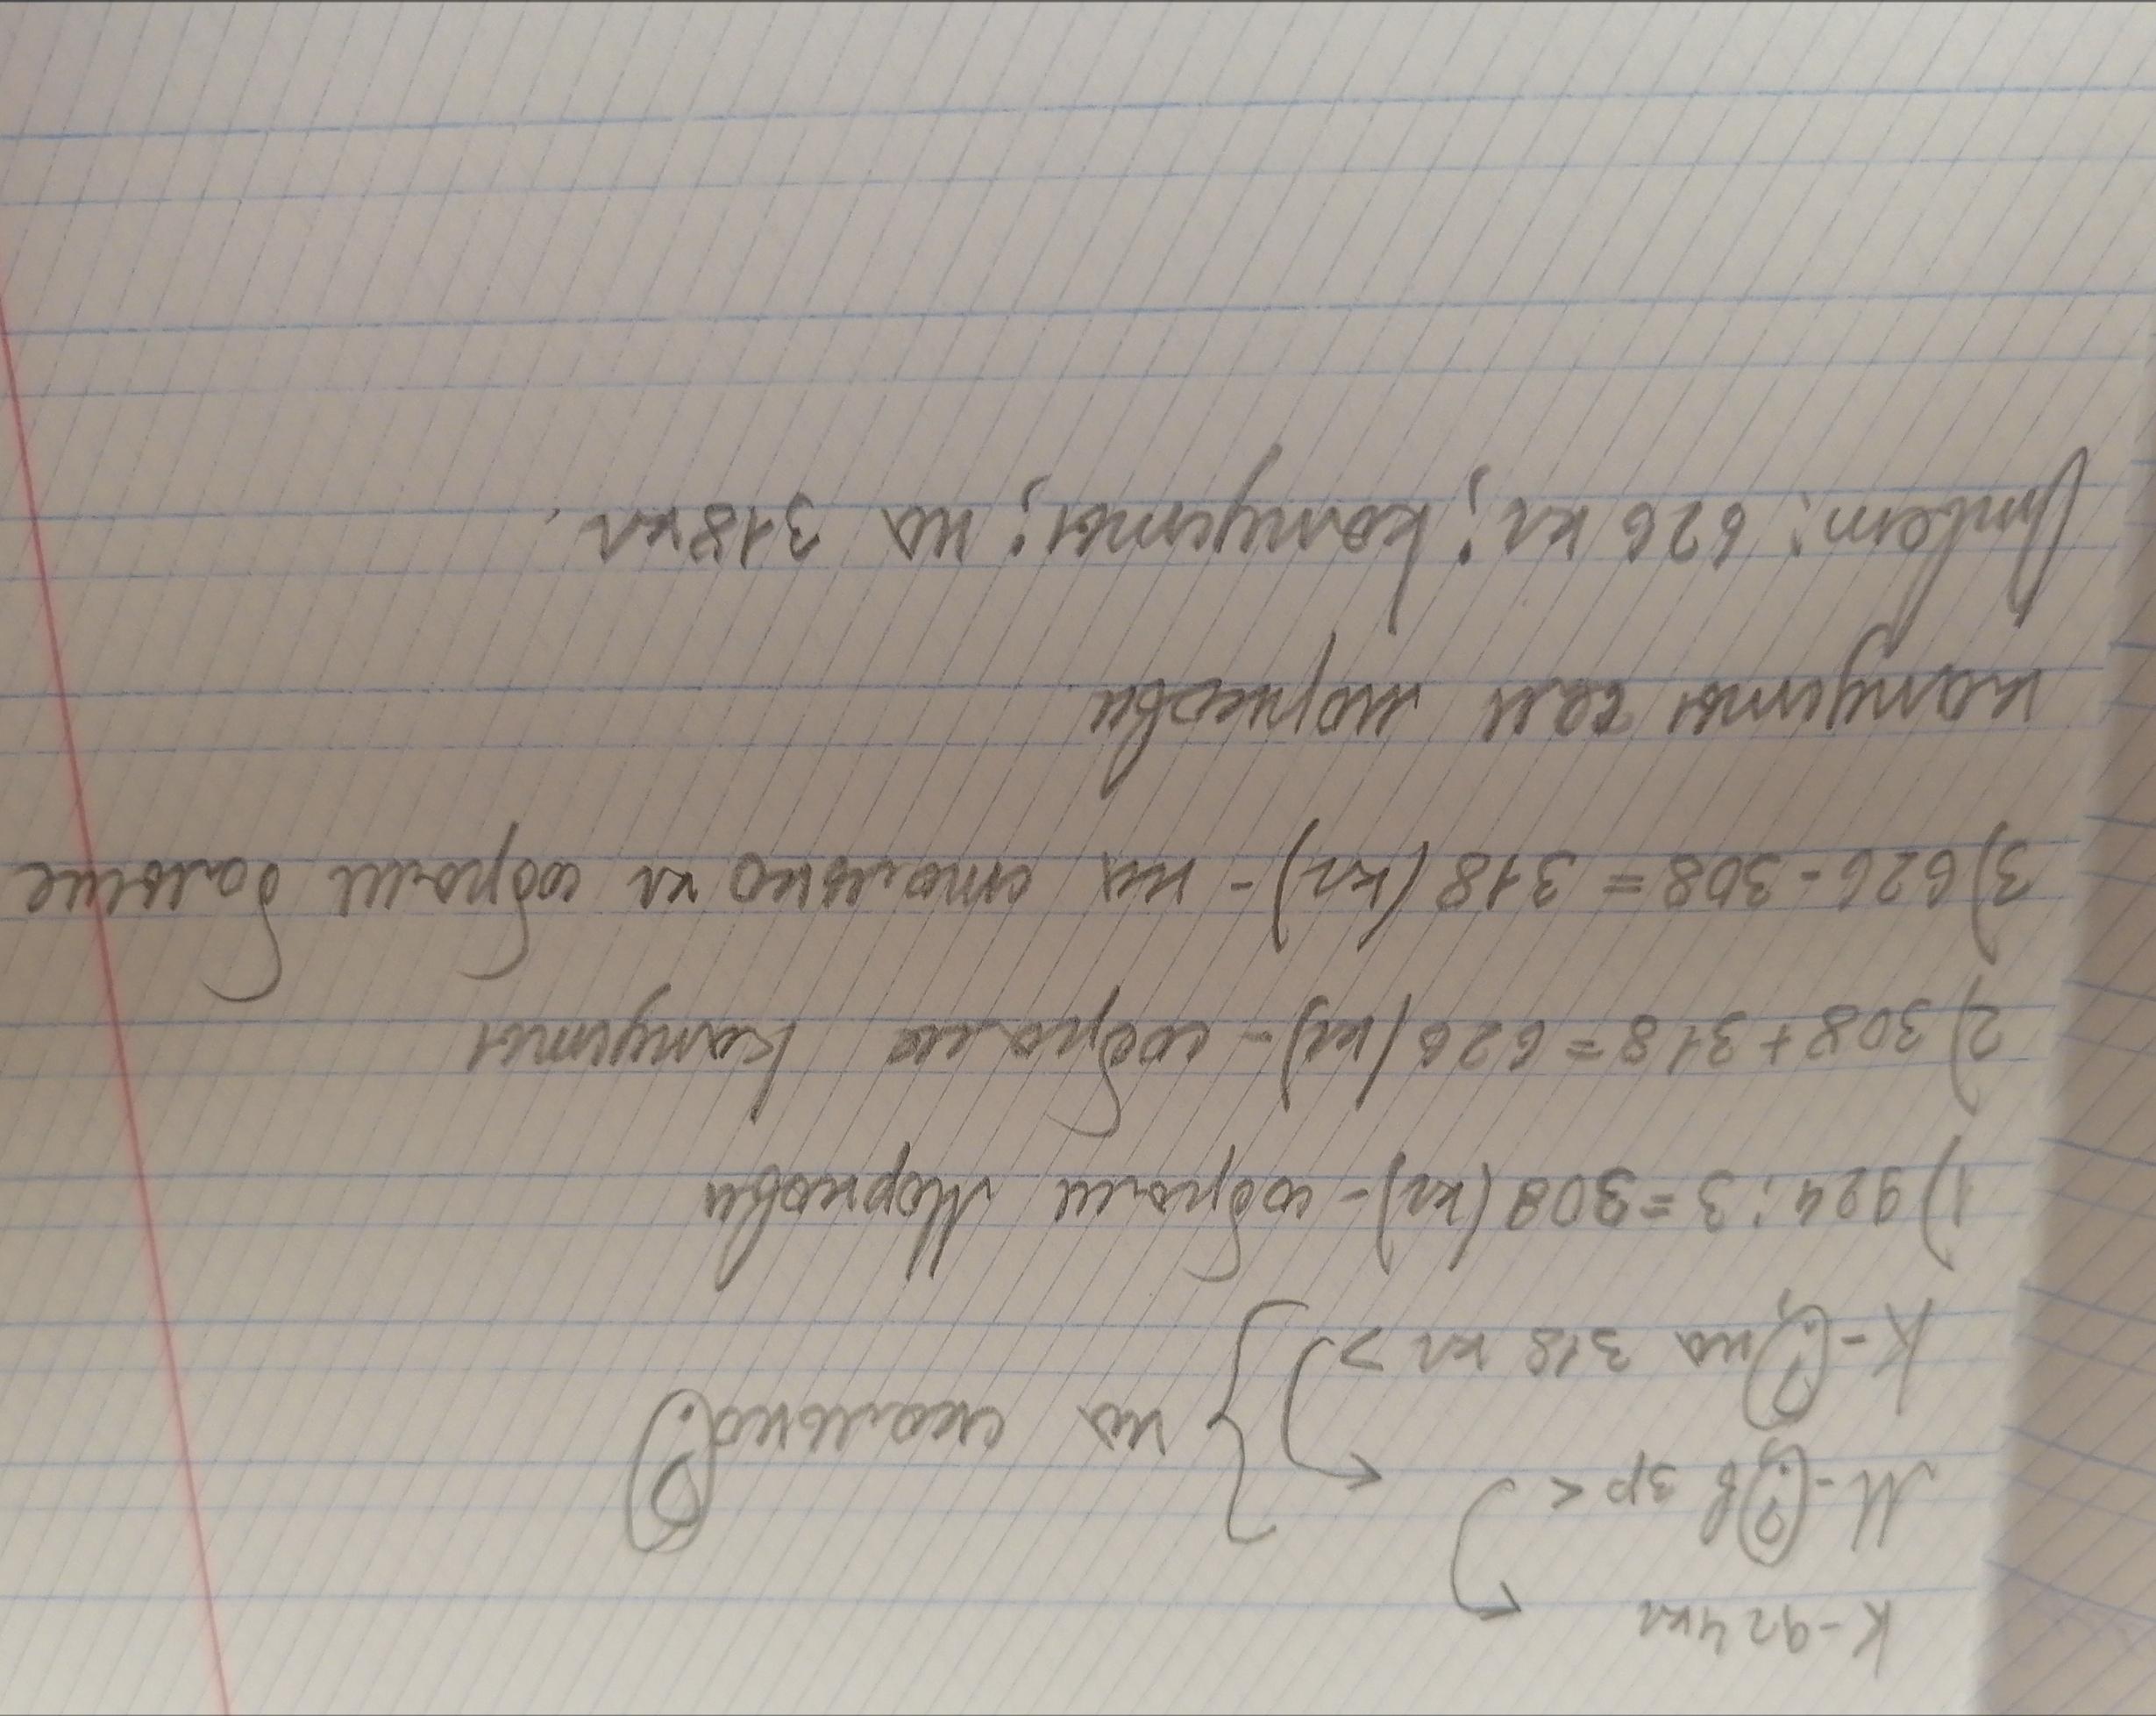 К-924кг
М-?, в 3р <
К-?, на 318 кг >
на сколько?
1) 924:3=308(кг)-собрали Моркови
2) 308+318=626(кг)-собрали Капусты
3) 626-308=318(кг)-на столько кг собрали больше
капусты чем моркови
Ответ: 626 кг; капусты; на 318кг.